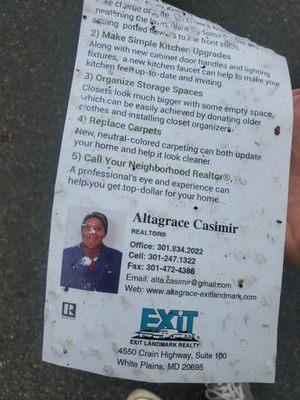 take charge of
adding potted flowers to the front
2) Make Simple Kitchen Upgrades
Along with new cabinet door handles and lighting
fixtures, a new kitchen faucet can help to make your
kitchen feel up-to-date and inviting.
3) Organize Storage Spaces
Closets look much bigger with some empty space,
which can be easily achieved by donating older
clothes and installing closet organizers.
4) Replace Carpets
New, neutral-colored carpeting can both update
your home and help it look cleaner.
5) Call Your Neighborhood Realtor®.
A professional's eye and experience can
help you get top-dollar for your home.
Altagrace Casimir
REALTOR®
Office: 301.934.2022
Cell: 301-247.1322
Fax: 301-472-4386
Email: alta.casimir@gmail.com
Web: www.altagrace-exitlandmark.com
R
EXIT
EXIT LANDMARK REALTY
4550 Crain Highway, Suite 100
White Plains, MD 20695